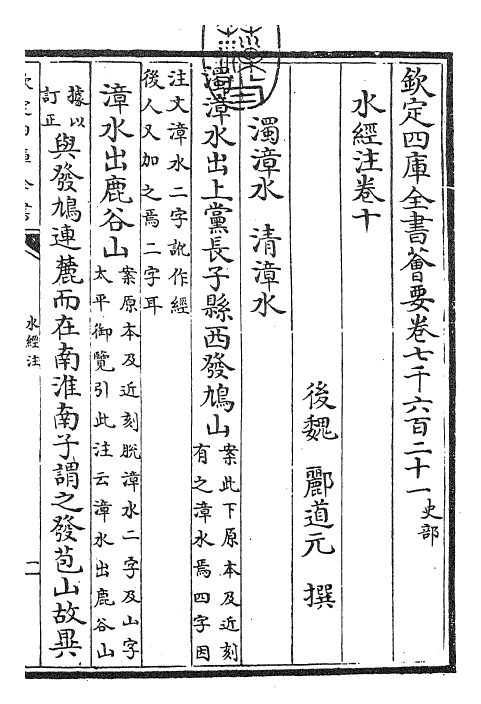 欽定四庫全書薈要卷七千六百二十一史部
水經注卷十
後魏 酈道元 撰
濁漳水 清漳水
濁漳水出上黨長子縣西發鳩山案此下原本及近刻
有之漳水焉四字因
注文漳水二字訛作經
後人又加之焉二字耳
漳水出鹿谷山案原本及近刻脫漳水二字及山字
太平御覽引此注云漳水出鹿谷山
據以
訂正與發鳩連麓而在南淮南子謂之發苞山故異
水經注
一